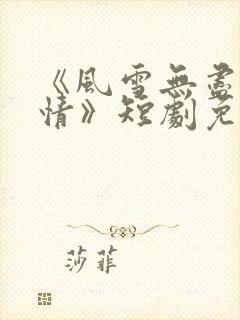 《風雪無盡
情》短劇免
莎菲